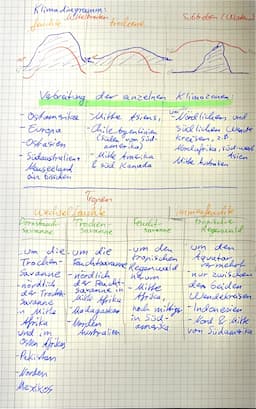 Klimadiagramm:
feuchte Mittelbreiten
trockene
Subtrop
Verbreitung der einzelnen Klimazonen:
- Ostamerika
- Europa
- Ostasien
- Südaustralien +
Neuseeland
- Mitte Asiens,
- Chile Argentinien
(Süden von Süd-
amerika)
- Mitte Amerika
& süd Kanada
- Nördlichen und
südlichen Wende
Kreisen, z.B.
Nordafrika, Süd-west Asien
Mitte Australien
Tropen
wechselfeuchte
immerfeuchte
Dornstrauch-
savanne
Trocken-
Savanne
Feucht-
savanne
tropischer
Regenwald
- um die
Trocken-
savanne
- nördlich
der Trocken-
savanne
in Mitte
Afrika
und im
osten Afrikas
- Pakistan
- Norden
Mexikos
- um die
Feuchtsavanne
- nördlich
der Feucht-
savanne in
Mitte Afrika
- Madagaskar
- Norden
Australien
- um den
tropischen
Regenwald
herum
- Mitte
Afrika,
in Süd-
amerika
- um den
Äquator,
vermehrt
- nur zwischen
den beiden
Wendekreisen
- Indonesien
- Nord & Mitte
von Südamerika